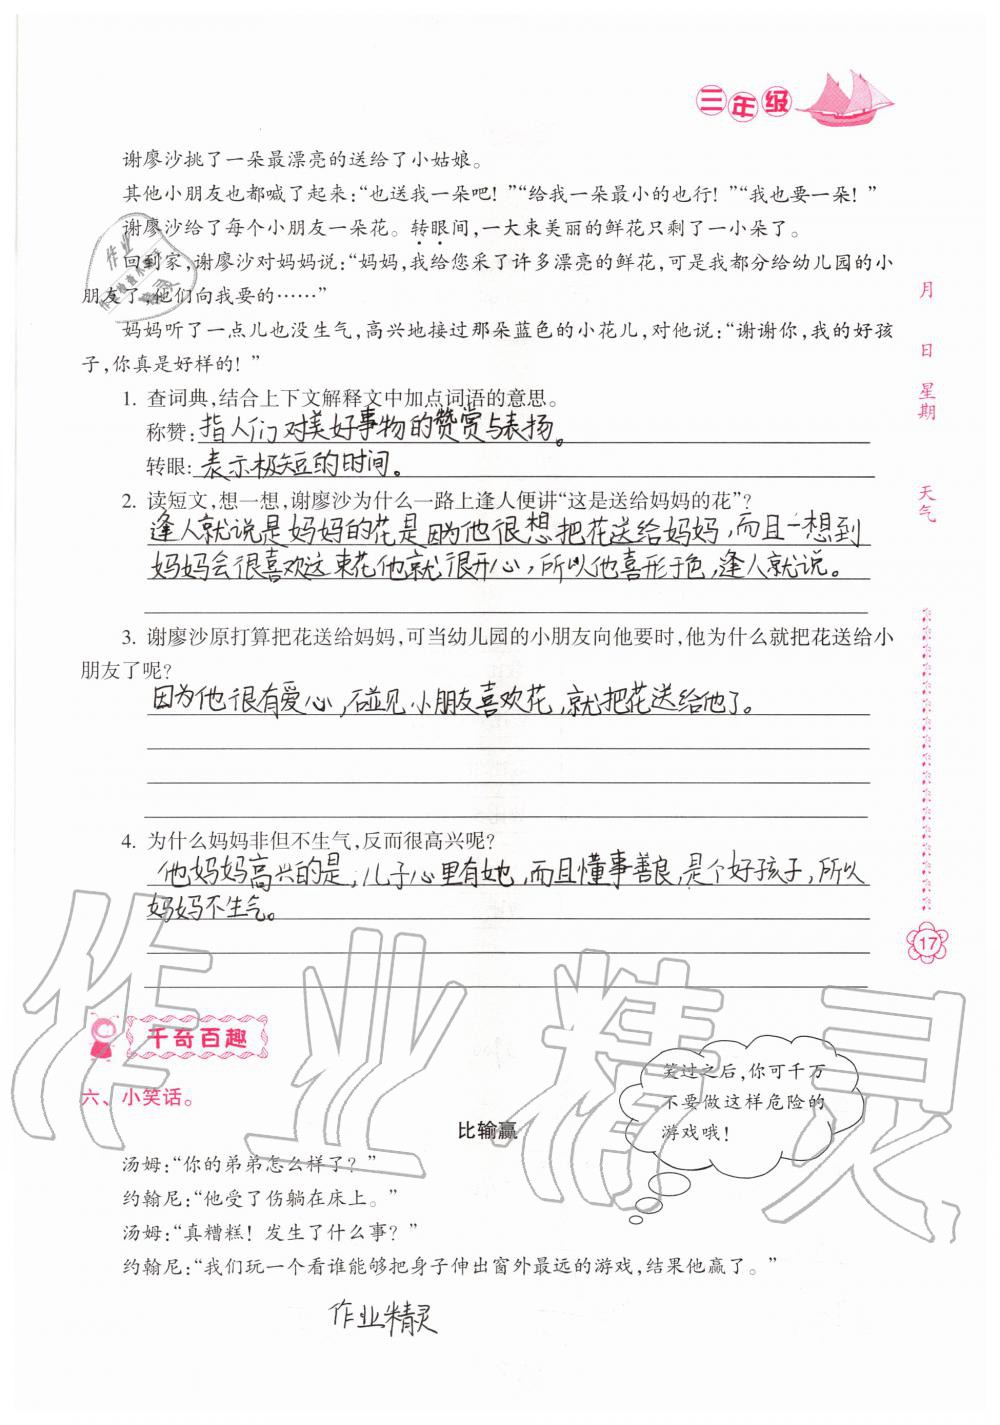 三年级
谢廖沙挑了一朵最漂亮的送给了小姑娘。
其他小朋友也都喊了起来：“也送我一朵吧！”“给我一朵最小的也行！”“我也要一朵！”
谢廖沙给了每个小朋友一朵花。转眼间，一大束美丽的鲜花只剩了一小朵了。
回到家，谢廖沙对妈妈说：“妈妈，我给您采了许多漂亮的鲜花，可是我都分给幼儿园的小
朋友了，他们向我要的……”
妈妈听了一点儿也没生气，高兴地接过那朵蓝色的小花儿，对他说：“谢谢你，我的好孩
子，你真是好样的！”
1. 查词典，结合上下文解释文中加点词语的意思。
称赞：指人们对美好事物的赞赏与表扬。
转眼：表示极短的时间。
2. 读短文，想一想，谢廖沙为什么一路上逢人便讲“这是送给妈妈的花”？
逢人就说是妈妈的花是因为他很想把花送给妈妈，而且一想到
妈妈会很喜欢这束花他就很开心，所以他喜形于色，逢人就说。
3. 谢廖沙原打算把花送给妈妈，可当幼儿园的小朋友向他要时，他为什么就把花送给小
朋友了呢？
因为他很有爱心，碰见小朋友喜欢花，就把花送给他了。
4. 为什么妈妈非但不生气，反而很高兴呢？
他妈妈高兴的是，儿子心里有她，而且懂事善良，是个好孩子，所以
妈妈不生气。
月
日
星期
天气
17
千奇百趣
六、小笑话。
笑过之后，你可千万
不要做这样危险的
游戏哦！
比输赢
汤姆：“你的弟弟怎么样了？”
约翰尼：“他受了伤躺在床上。”
汤姆：“真糟糕！发生了什么事？”
约翰尼：“我们玩一个看谁能够把身子伸出窗外最远的游戏，结果他赢了。”
作业精灵
作业精灵